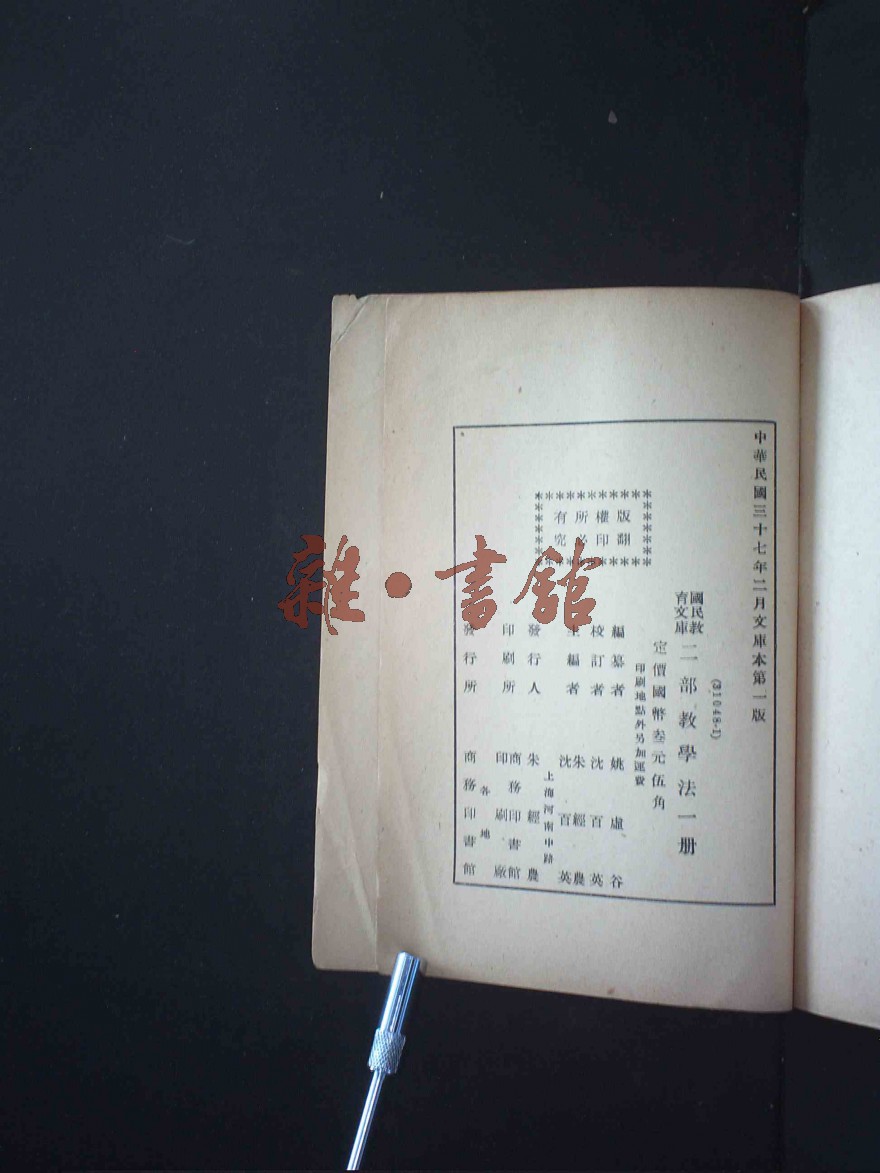 中華民國三十七年二月文庫本第一版
(31048·1)
國民教育文庫 二部教學法一册
定價國幣叁元伍角
印刷地點外另加運費
版權所有
翻印必究
編纂者 姚虛谷
校訂者 沈百英
主編者 朱經農 沈百英
上海河南中路
發行人 朱經農
印刷所 商務印書館印刷廠
各地
發行所 商務印書館
雜·書館